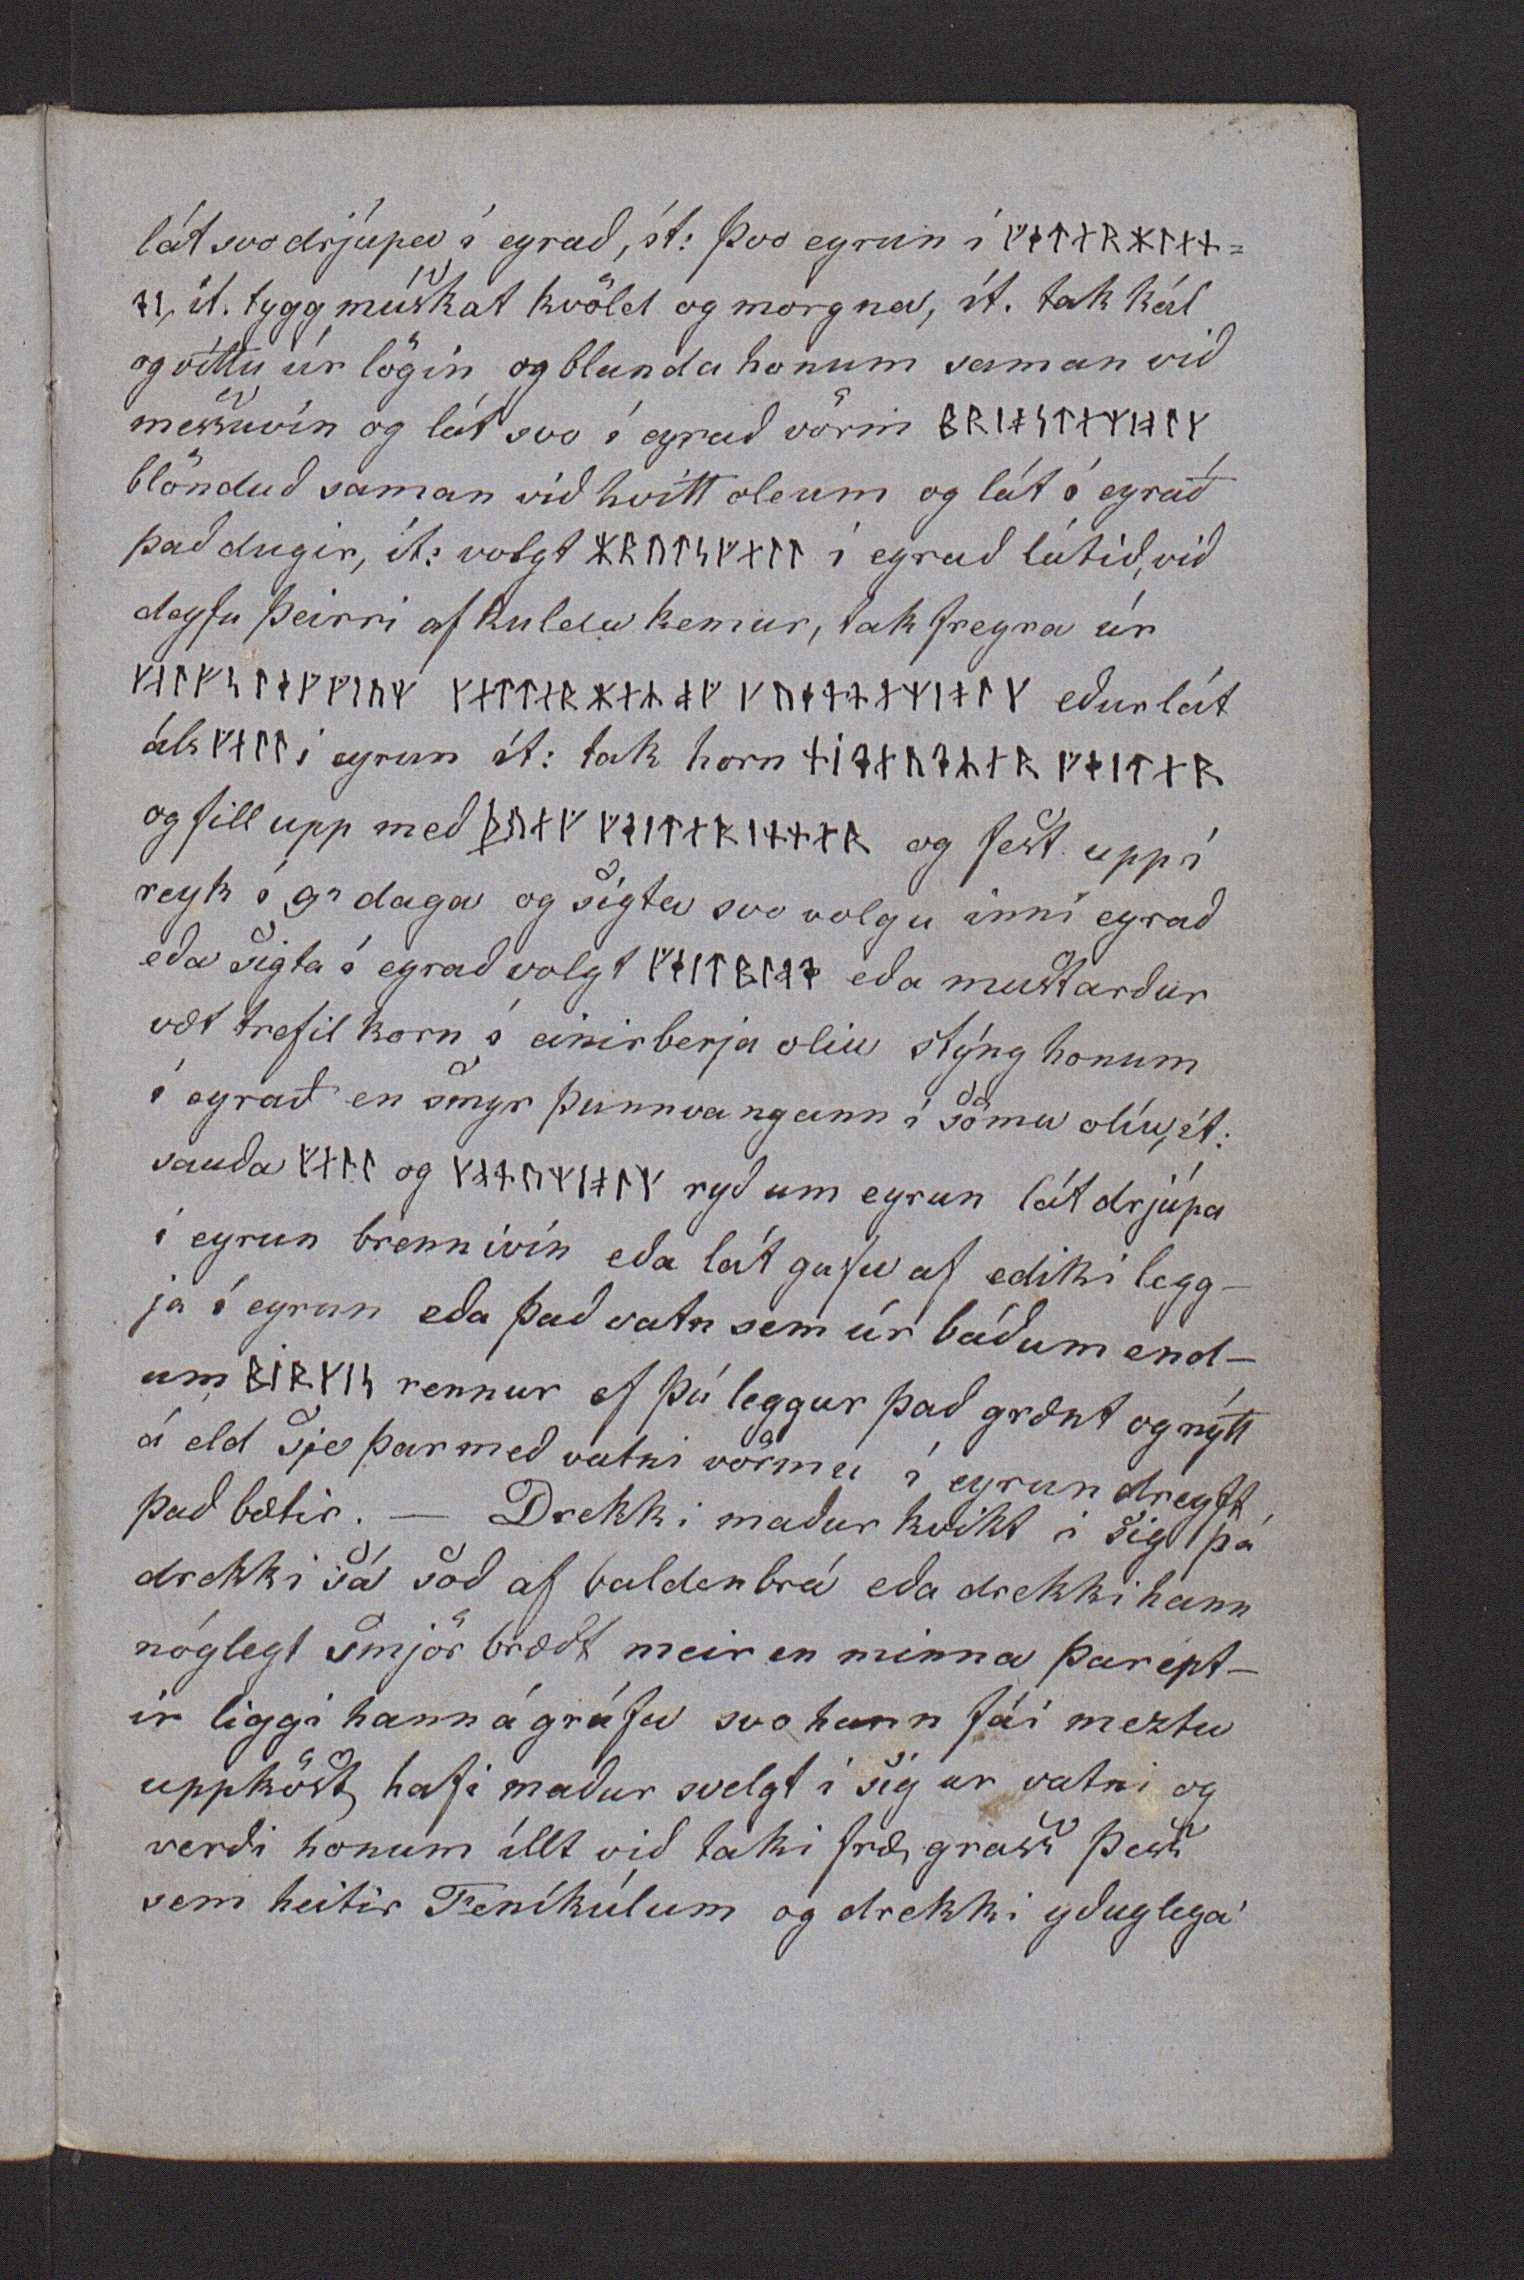 lát svo drjúpa í eyrað, ít: þvo eyrun í
ít. tygg múskat kvöld og morgna, ít. tak kál
og víttu úr lögin og blanda honum saman við
messuvín og lát svo í eyrað vörm ᛒᚱᛁᚮᛋᛏᛅᛘᛁᚮᛚᚴ
blönduð saman við hvítt oleum og lát í eyrað
það dugir, ít: volgt ᚼᚱᚢᛏᛋᚵᛅᛚᛚ í eyrað látið, við
deyfu þeirri af kulda kemur, tak freyra úr
eður lát
áls ᚵᛅᛚᛚ í eyrun ít: tak horn
og fill upp með ᚦᚢᛅᚵ og fest upp í
reyk í 9 daga og sigta svo volgu inní eyrað
eða sigta í eyrað volgt eða mustarður
væt trefil korn í einirberja oliu stýng honum
í eyrað en smyr þunnvangann í sömu olíu, ít:
sauða ᚵᛅᛚᛚ og ᚴᚮᚾᚢᛘᛁᚮᛚᚴ ryð um eyrun lát drjúpa
í eyrun brennivín eða lát gufu af ediki legg-
ja í eyrun eða það vatn sem úr báðum end-
um ᛒᛁᚱᚴᛁᛋ rennur ef þú leggur það grænt og nýtt
á eld sje þar með vatni vörmu í eyrun dreyft
það bætir. — Drekki maður kvikt í sig þá
drekki sá soð af baldenbrá eða drekki hann
nóglegt smjör brædt meir en minna þar ept-
ir liggi hann á grúfu svo hann fái meztu
uppköst, hafi maður svelgt í sig ur vatni og
verði honum íllt við taki fræ grass þess
sem heitir Feníkúlum og drekki yðuglega